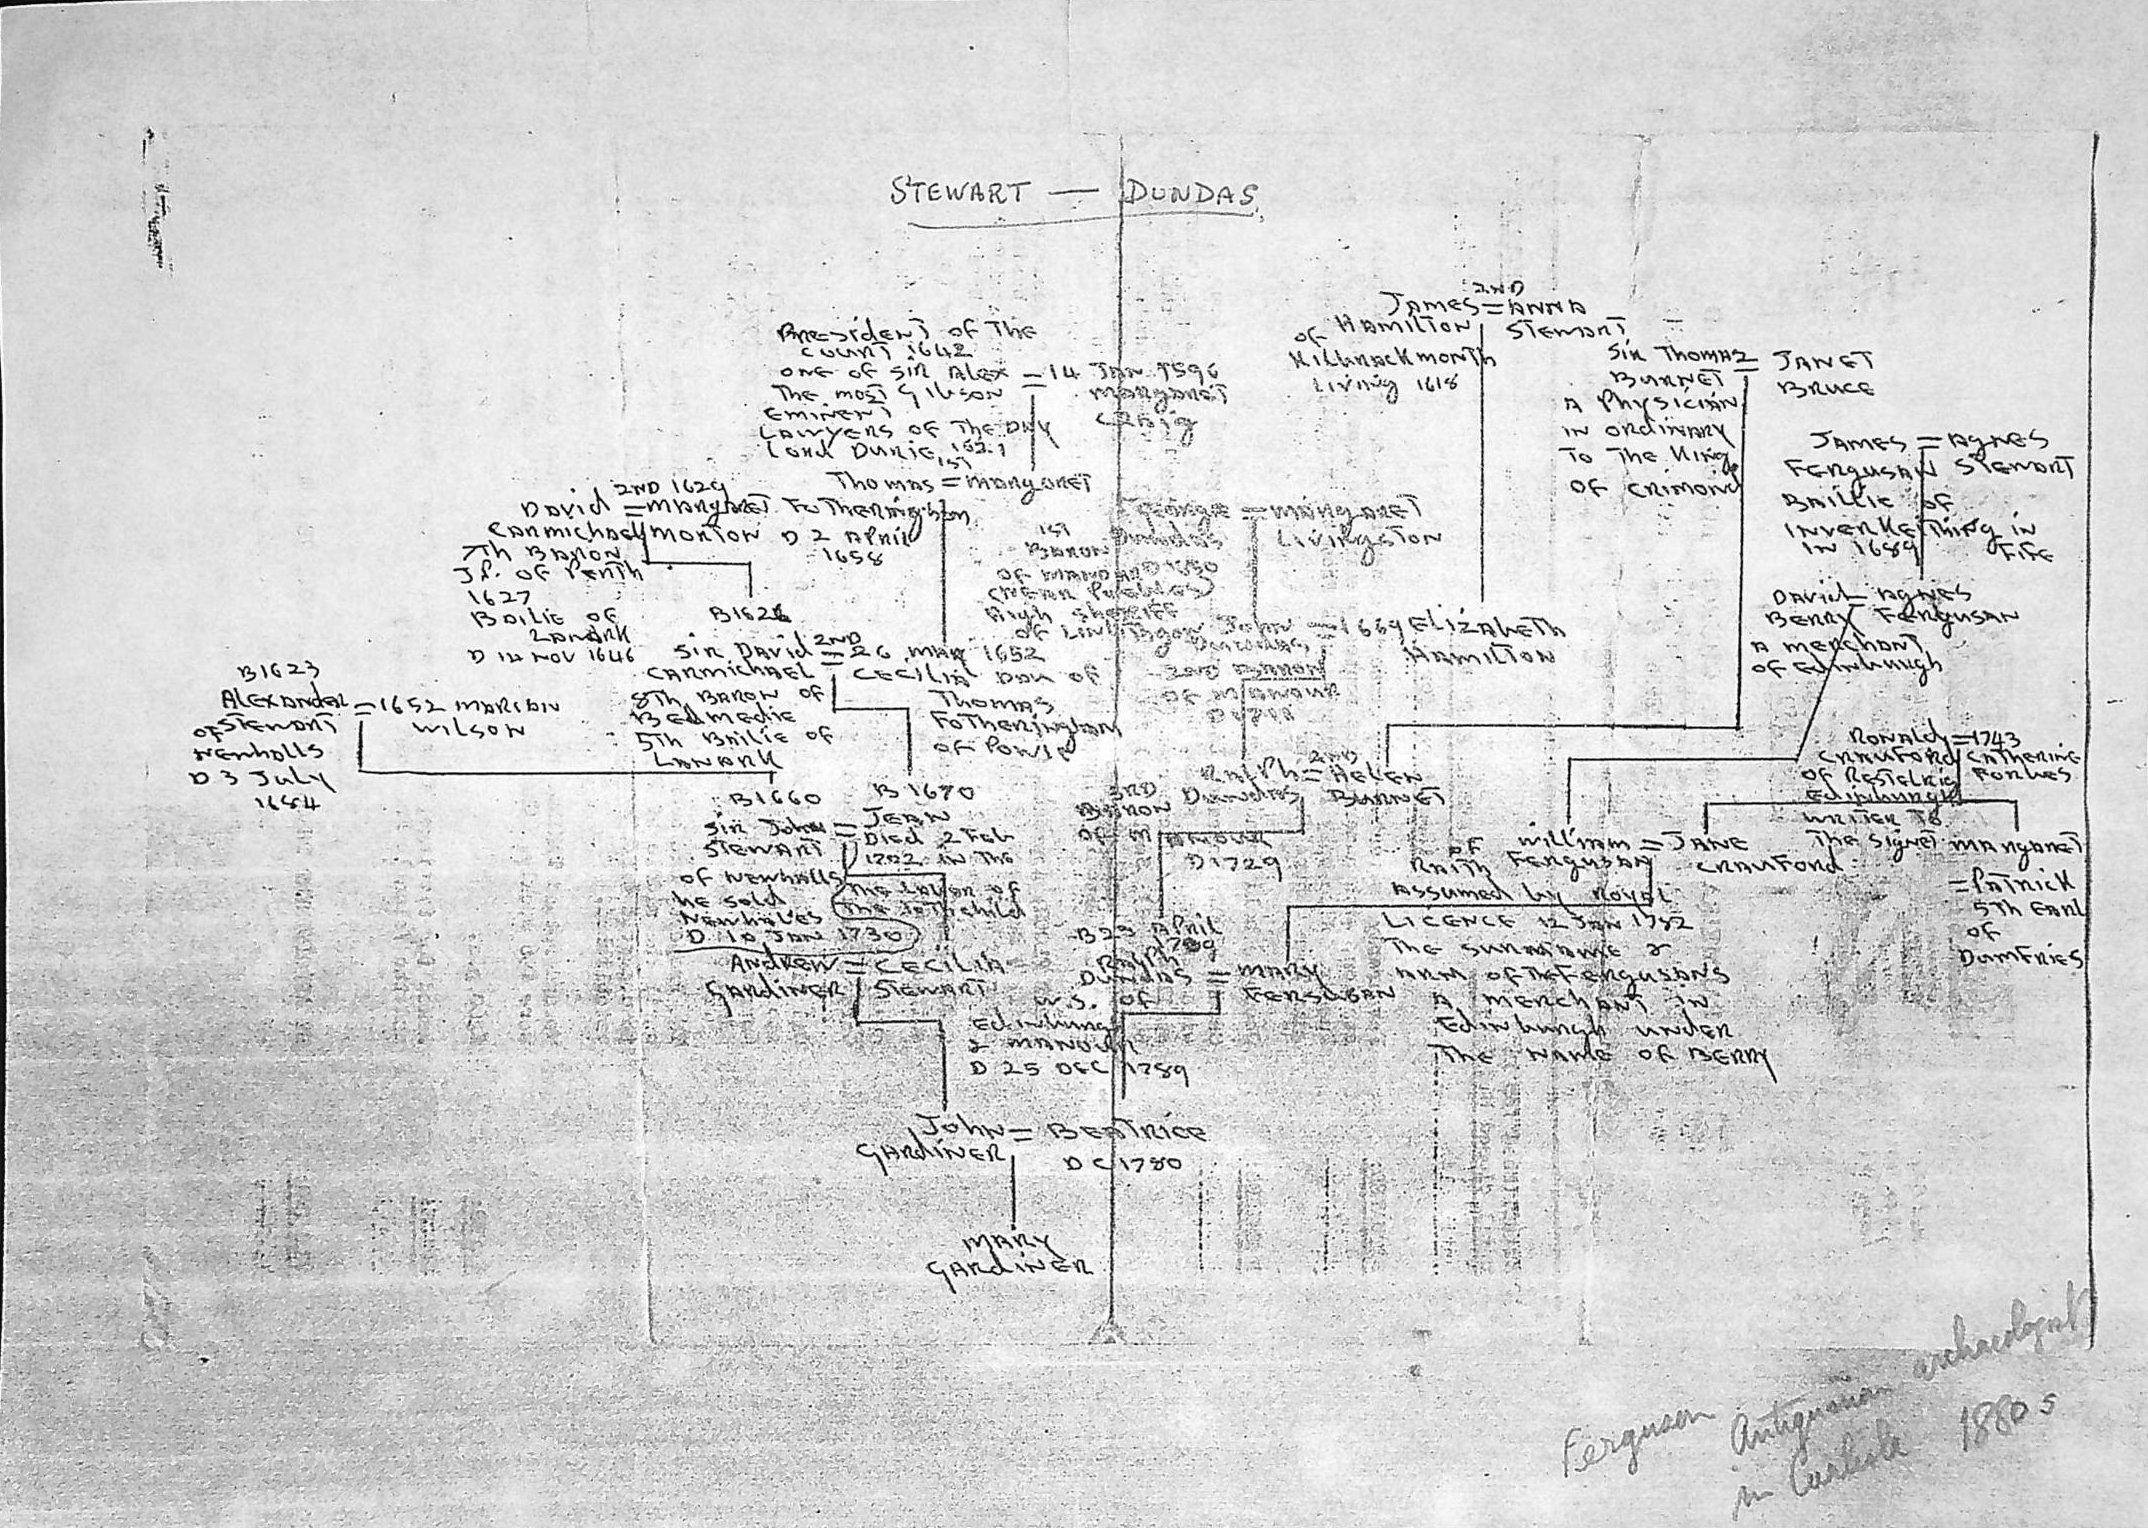 STEWART — DUNDAS
2ND
JAMES = ANNA
OF HAMILTON STEWART
LIVING 1618
PRESIDENT OF THE
COURT 1642
ONE OF SIR ALEX = 14 JAN 1596
THE MOST GIBSON MARGARET
EMINENT CRAIG
LAWYERS OF THE DAY
LORD DURIE 1621
SIR THOMAS = JANET
BURNET BRUCE
A PHYSICIAN
IN ORDINARY
TO THE KING
OF CRIMOND
JAMES = AGNES
FERGUSAN STEWART
BAILLIE OF
INVERKEITHING IN
IN 1689 FIFE
1ST
THOMAS = MARGARET
FOTHERINGHAM
D 2 APRIL
1658
2ND 1629
DAVID = MARGARET
CARMICHAEL MORTON
7TH BARON
J.P. OF PERTH
1627
BAILIE OF
LANARK
D 14 NOV 1646
GEORGE = MARGARET
DUNDAS LIVINGSTON
1ST
BARON
OF MANOR D 1650
(NEAR PEEBLES)
HIGH SHERIFF
OF LINLITHGOW
JOHN = 1669 ELIZABETH
DUNDAS HAMILTON
2ND BARON
OF MANOUR
DAVID = AGNES
BERRY FERGUSAN
A MERCHANT
OF EDINBURGH
SIR DAVID 2ND = 26 MAR 1652
CARMICHAEL CECILIA DAU OF
8TH BARON OF THOMAS
BEDMEDIE FOTHERINGHAM
5TH BAILIE OF OF POWIE
LANARK
B 1623
ALEXANDER = 1652 MARION
STEWART WILSON
OF
NEWHALLS
D 3 JULY
1684
RONALD = 1743
CRAUFORD CATHERINE
OF RESTELRIG FORBES
EDINBURGH
WRITER TO
THE SIGNET
2ND
RALPH = HELEN
DUNDAS BURNET
3RD
BARON
OF MANOUR
D 1729
B 1660 B 1670
SIR JOHN = JEAN
STEWART DIED 2 FEB
OF NEWHALLS 1702 IN THE
HE SOLD THE LABER OF
NEWHALLS THE 10TH CHILD
D 10 JAN 1730
WILLIAM = JANE
FERGUSAN CRAUFORD
OF
RAITH
ASSUMED BY ROYAL
LICENCE 12 JAN 1782
THE SURNAME &
ARM OF THE FERGUSANS
A MERCHANT IN
EDINBURGH UNDER
THE NAME OF BERRY
MARGARET
= PATRICK
5TH EARL
OF
DUMFRIES
ANDREW = CECILIA
GARDINER STEWART
RALPH
DUNDAS = MARY
W.S. OF FERGUSAN
EDINBURGH
& MANOUR
D 25 DEC 1789
JOHN = BEATRICE
GARDINER D C 1780
MARY
GARDINER
Ferguson Antiquarian archaeologist
in Carlisle 1880s